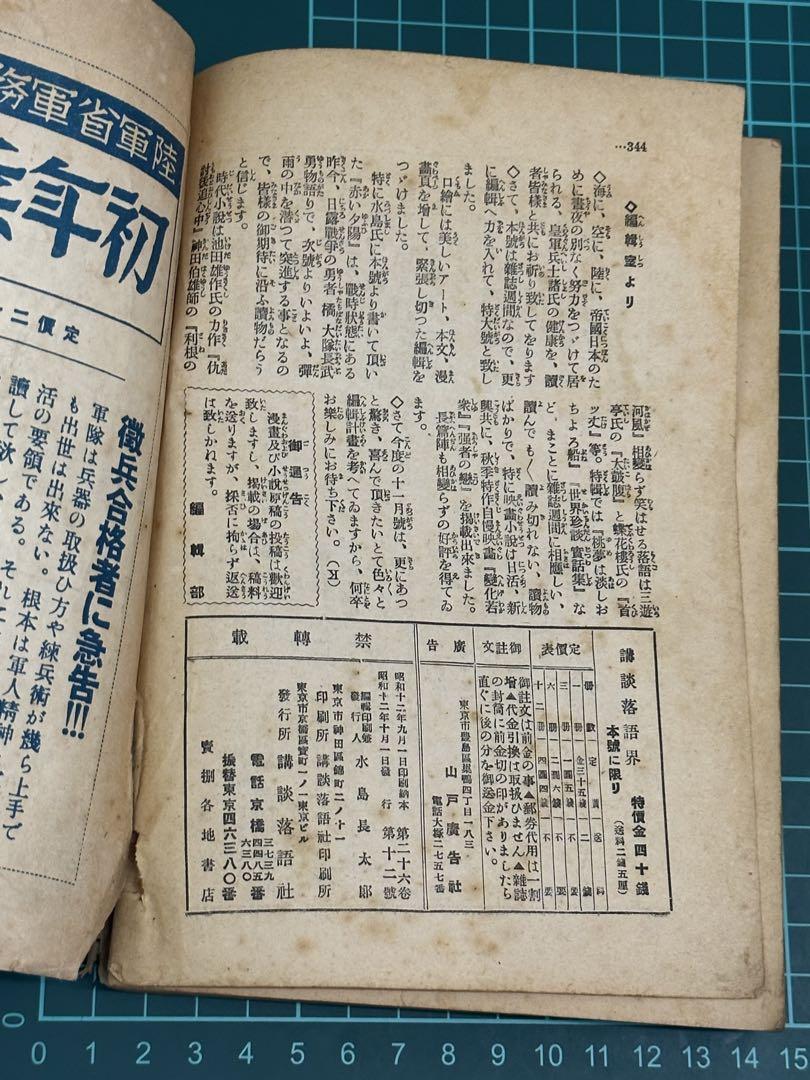 …344
◇編輯室より
◇海に、空に、陸に、帝國日本のた
めに晝夜の別なく努力をつゞけて居
られる、皇軍兵士諸氏の健康を、讀
者皆樣と共にお祈り致してをります
◇さて、本號は雜誌週間なので、更
に編輯へ力を入れて、特大號と致し
ました。
口繪には美しいアート、本文、漫
畫頁を增して、緊張し切つた編輯を
つゞけました。
特に水島氏に本號より書いて頂い
た『赤い夕陽』は、戰時狀態にある
昨今、日露戰爭の勇者 橘 大隊長武
勇物語りで、次號よりいよいよ、彈
雨の中を潜つて突進する事となるの
で、皆樣の御期待に沿ふ讀物だらう
と信じます。
時代小說は池田雄作氏の力作『仇
討後追心中』神田伯雄師の『利根の
河風』相變らず笑はせる落語は三遊
亭氏の『太皷腹』と蝶花樓氏の『首
ツ丈』等。特輯では『桃夢は淡しお
ちよろ船』『世界珍談 實話集』な
ど、まことに雜誌週間に相應しい、
讀んでも、讀み切れない、讀物
ばかりで、特に映畫小說は日活、新
興共に、秋季特作自慢映畫『變化若
衆』『强者の戀』を揭載出來ました。
長篇陣も相變らずの好評を得てゐ
ます。
◇さて今度の十一月號は、更にあつ
と驚き、喜んで頂きたいと色々と
編輯計畫を考へてゐますから、何卒
お樂しみにお待ち下さい。
御通告
漫畫及び小說原稿の投稿は歡迎
致しますし、揭載の場合は、稿料
を送りますが、採否に拘らず返送
は致しかねます。
編輯部
講談落語界
本號に限り
特價金四十錢
(送料二錢五厘)
定價表
册數 定價 送料
一册 金三十五錢 二錢
三册 一圓五錢 不要
六册 二圓六錢 不要
十二册 四圓四錢 不要
御註文
御註文は前金の事▲郵券代用は一割
增▲代金引換は取扱ひません▲雜誌
の封筒に前金切の印がありましたら
直ぐに後の分を御送金下さい。
廣告
東京市豊島區巢鴨四丁目一八三
山戸廣告社
電話大塚二七五七番
禁轉載
昭和十二年九月一日印刷納本
昭和十二年十月一日發行
第二十六卷
第十二號
編輯印刷兼
發行人
水島長太郎
東京市神田區錦町二ノ十一
印刷所 講談落語社印刷所
東京市京橋區寳町一ノ一東京ビル
發行所 講談落語社
電話京橋
三七三九
四四八五
六三八〇
番
振替東京四六三八〇番
賣捌各地書店
陸軍省軍務
初年兵
定價二
徵兵合格者に急告!!!
軍隊は兵器の取扱ひ方や練兵術が幾ら上手で
も出世は出來ない。根本は軍人精神
活の要領である。それ
讀して欲し
0 1 2 3 4 5 6 7 8 9 10 11 12 13 14 15
0